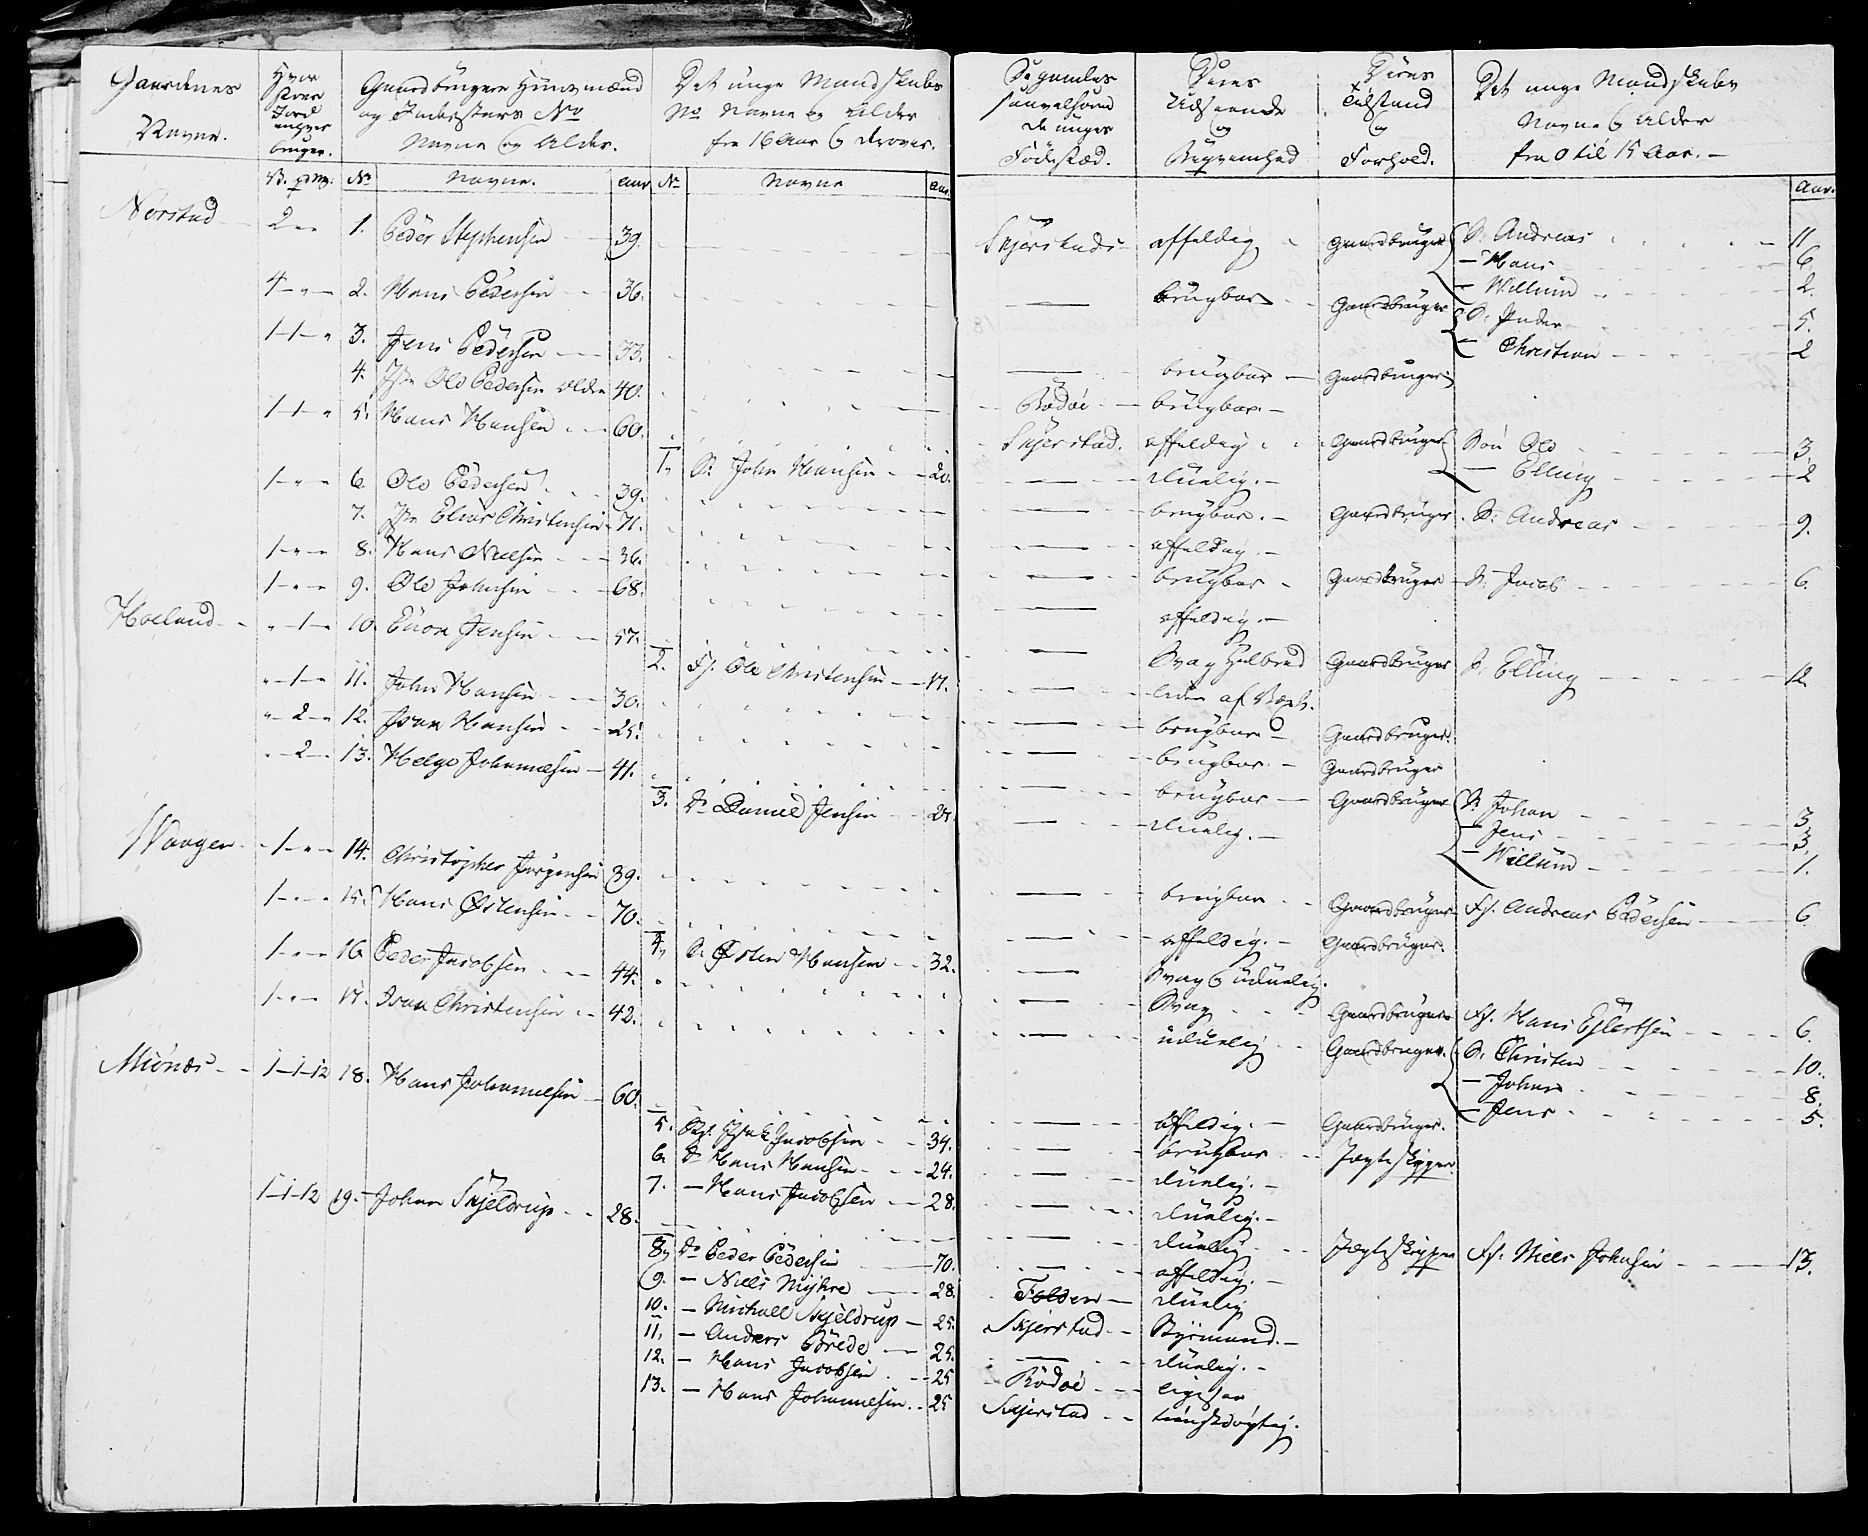 Gaardenes Navne.
Hvor stor Jord enhver bruger.
Gaardbrugere Huusmænd og Inderster No Navne og Alder.
Det unge Mandskabs No Navne og Alder fra 16 Aar & derover.
De gamles saavelsom de unges Fødested.
Deres Udseende og Beqvemhed
Deres Tilstand og Forhold.
Det unge Mandskabs Navne & Alder fra 0 til 15 Aar.
No Navne. Aar No Navne Aar. Aar.
Norstad 2 " " 1. Peder Stephensen 39. Skjerstads affeldig Gaardbruger S: Andreas 11
— Hans 6
— Willum 2.
4 - " - 2. Hans Pedersen 36. — brugbar Gaardbruger S: Peder 5.
— Christian 2
1-1- " 3. Jens Pedersen 33. — brugbar Gaardbruger
4. Ole Pedersen ældre 40. Rødøe brugbar.
1-1- " 5. Hans Hansen 60. Skjerstad. affeldig Gaardbruger Søn Ole 3.
— Elling 2
1, S: John Hansen 20. — duelig.
1 - " - 6 Ole Pedersen 39. — brugbar. Gaardbruger S: Andreas 9.
7. Elias Christensen 71. — affeldig.
1 - " - 8. Hans Nielsen 36. — brugbar Gaardbruger S: Jacob 6.
1 - " - 9. Ole Johnsen 68. — affeldig.
Hoeland " -1- 10. Enok Jensen 57. — Svag Helbred Gaardbruger S: Elling 12.
2. Fs. Ole Christensen 17. — liden af Vext.
" -1- 11. John Hansen 30. — brugbar Gaardbruger.
" -2- 12. Ivar Hansen 25. — brugbar. Gaardbruger
" -2- 13. Helge Johannesen 41. — brugbar Gaardbruger S: Johan 3
— Jens 3.
— Willum 1.
3. Do Daniel Jensen 24 — duelig.
Waagen 1 - " - 14. Christopher Jørgensen 39. — brugbar Gaardbruger Fs. Andreas Pedersen 6.
1 - " - 15. Hans Østensen 70. — affeldig. Gaardbruger.
4, S: Østen Hansen 32. — Svag & uduelig.
1 - " - 16 Peder Jacobsen 44. — Svag Gaardbruger Fs. Hans Eilertsen 6.
1 - " - 17. Ivar Christensen 42. — uduelig Gaardbruger. S: Christen 10.
— Johan 8.
— Jens 5.
Miønæs 1-1-12 18. Hans Johannesen 60. — affeldig. Gaardbruger.
5. Isak Jacobsen 34. — brugbar Jægteskipper
6. Do Hans Hansen 24. — duelig.
7. — Hans Jacobsen 28. — duelig.
1-1-12 19. Johan Skjeldrup 28. — duelig Jægteskipper Fs. Niels Johnsen 13.
8, Do Peder Pedersen 70. — affeldig.
9. — Niels Myhre 28. Folden duelig
10. — Michall Skjeldrup 25. Skjerstad Styrmand.
11, — Anders Brede 25. — duelig.
12. — Hans Jacobsen 25 Rødøe ligesaa
13. — Hans Johannesen 25 Skjerstad tienstdygtig.